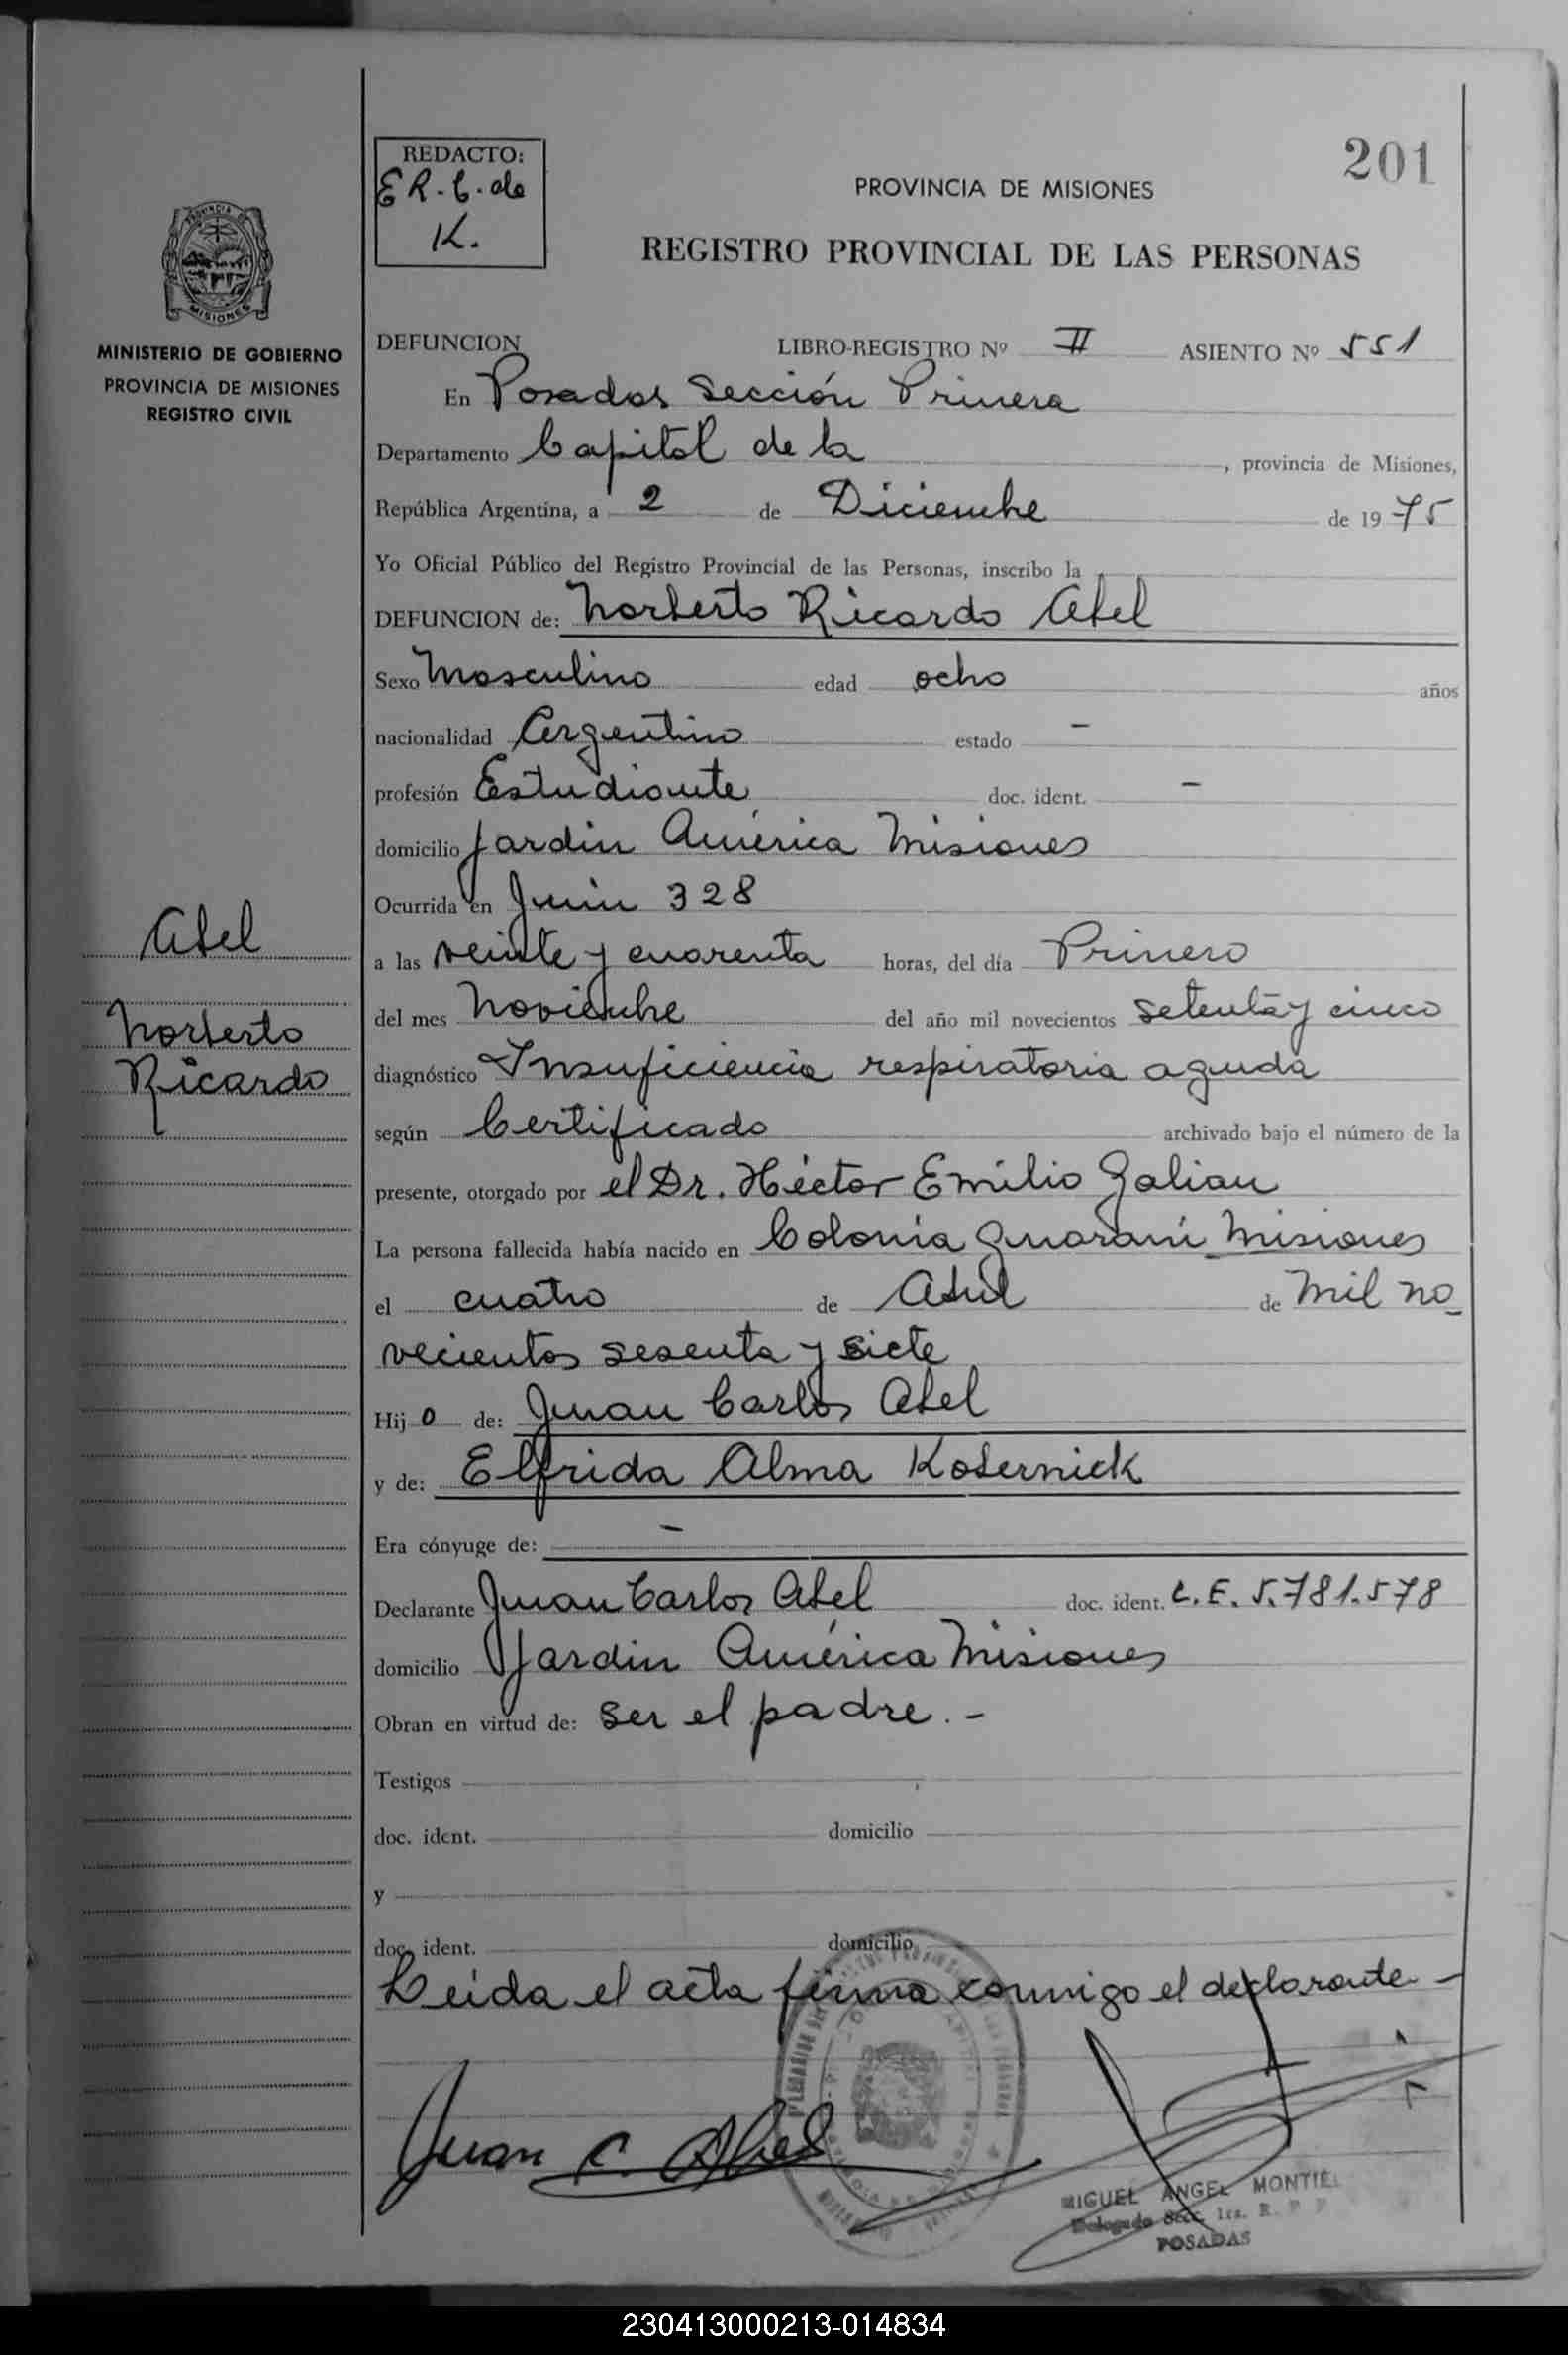 REDACTO:
E R. C. de
K.
201
PROVINCIA DE MISIONES
REGISTRO PROVINCIAL DE LAS PERSONAS
MISIONES
MINISTERIO DE GOBIERNO
PROVINCIA DE MISIONES
REGISTRO CIVIL
DEFUNCION LIBRO-REGISTRO Nº II ASIENTO Nº 551
En Posadas Sección Primera
Departamento Capital de la , provincia de Misiones,
República Argentina, a 2 de Diciembre de 1975
Yo Oficial Público del Registro Provincial de las Personas, inscribo la
DEFUNCION de: Norberto Ricardo Abel
Sexo Masculino edad ocho años
nacionalidad Argentino estado -
profesión Estudiante doc. ident. -
domicilio Jardin América Misiones
Ocurrida en Junin 328
a las veinte y cuarenta horas, del día Primero
del mes Noviembre del año mil novecientos setenta y cinco
diagnóstico Insuficiencia respiratoria aguda
según Certificado archivado bajo el número de la
presente, otorgado por el Dr. Héctor Emilio Galian
La persona fallecida había nacido en Colonia Guaraní Misiones
el cuatro de Abril de mil no_
vecientos sesenta y siete
Hij o de: Juan Carlos Abel
y de: Elfrida Alma Kosernick
Era cónyuge de: -
Declarante Juan Carlos Abel doc. ident. C. E. 5.781.578
domicilio Jardin América Misiones
Obran en virtud de: Ser el padre. -
Testigos
doc. ident. domicilio
y
doc. ident. domicilio
Leida el acta firma conmigo el declarante -
Juan C. Abel
MIGUEL ANGEL MONTIEL
Delegado Secc. 1ra. R. P. P.
POSADAS
Abel
Norberto
Ricardo
230413000213-014834